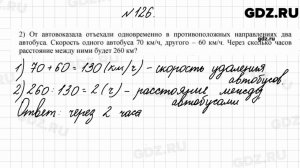 GDZ.RU
№ 126.
2) От автовокзала отъехали одновременно в противоположных направлениях два
автобуса. Скорость одного автобуса 70 км/ч, другого – 60 км/ч. Через сколько часов
расстояние между ними будет 260 км?
1) 70+60=130 (км/ч) - скорость удаления
автобусов.
2) 260:130=2 (ч) - расстояние между
автобусами
Ответ: через 2 часа
GDZ.RU
GDZ.RU